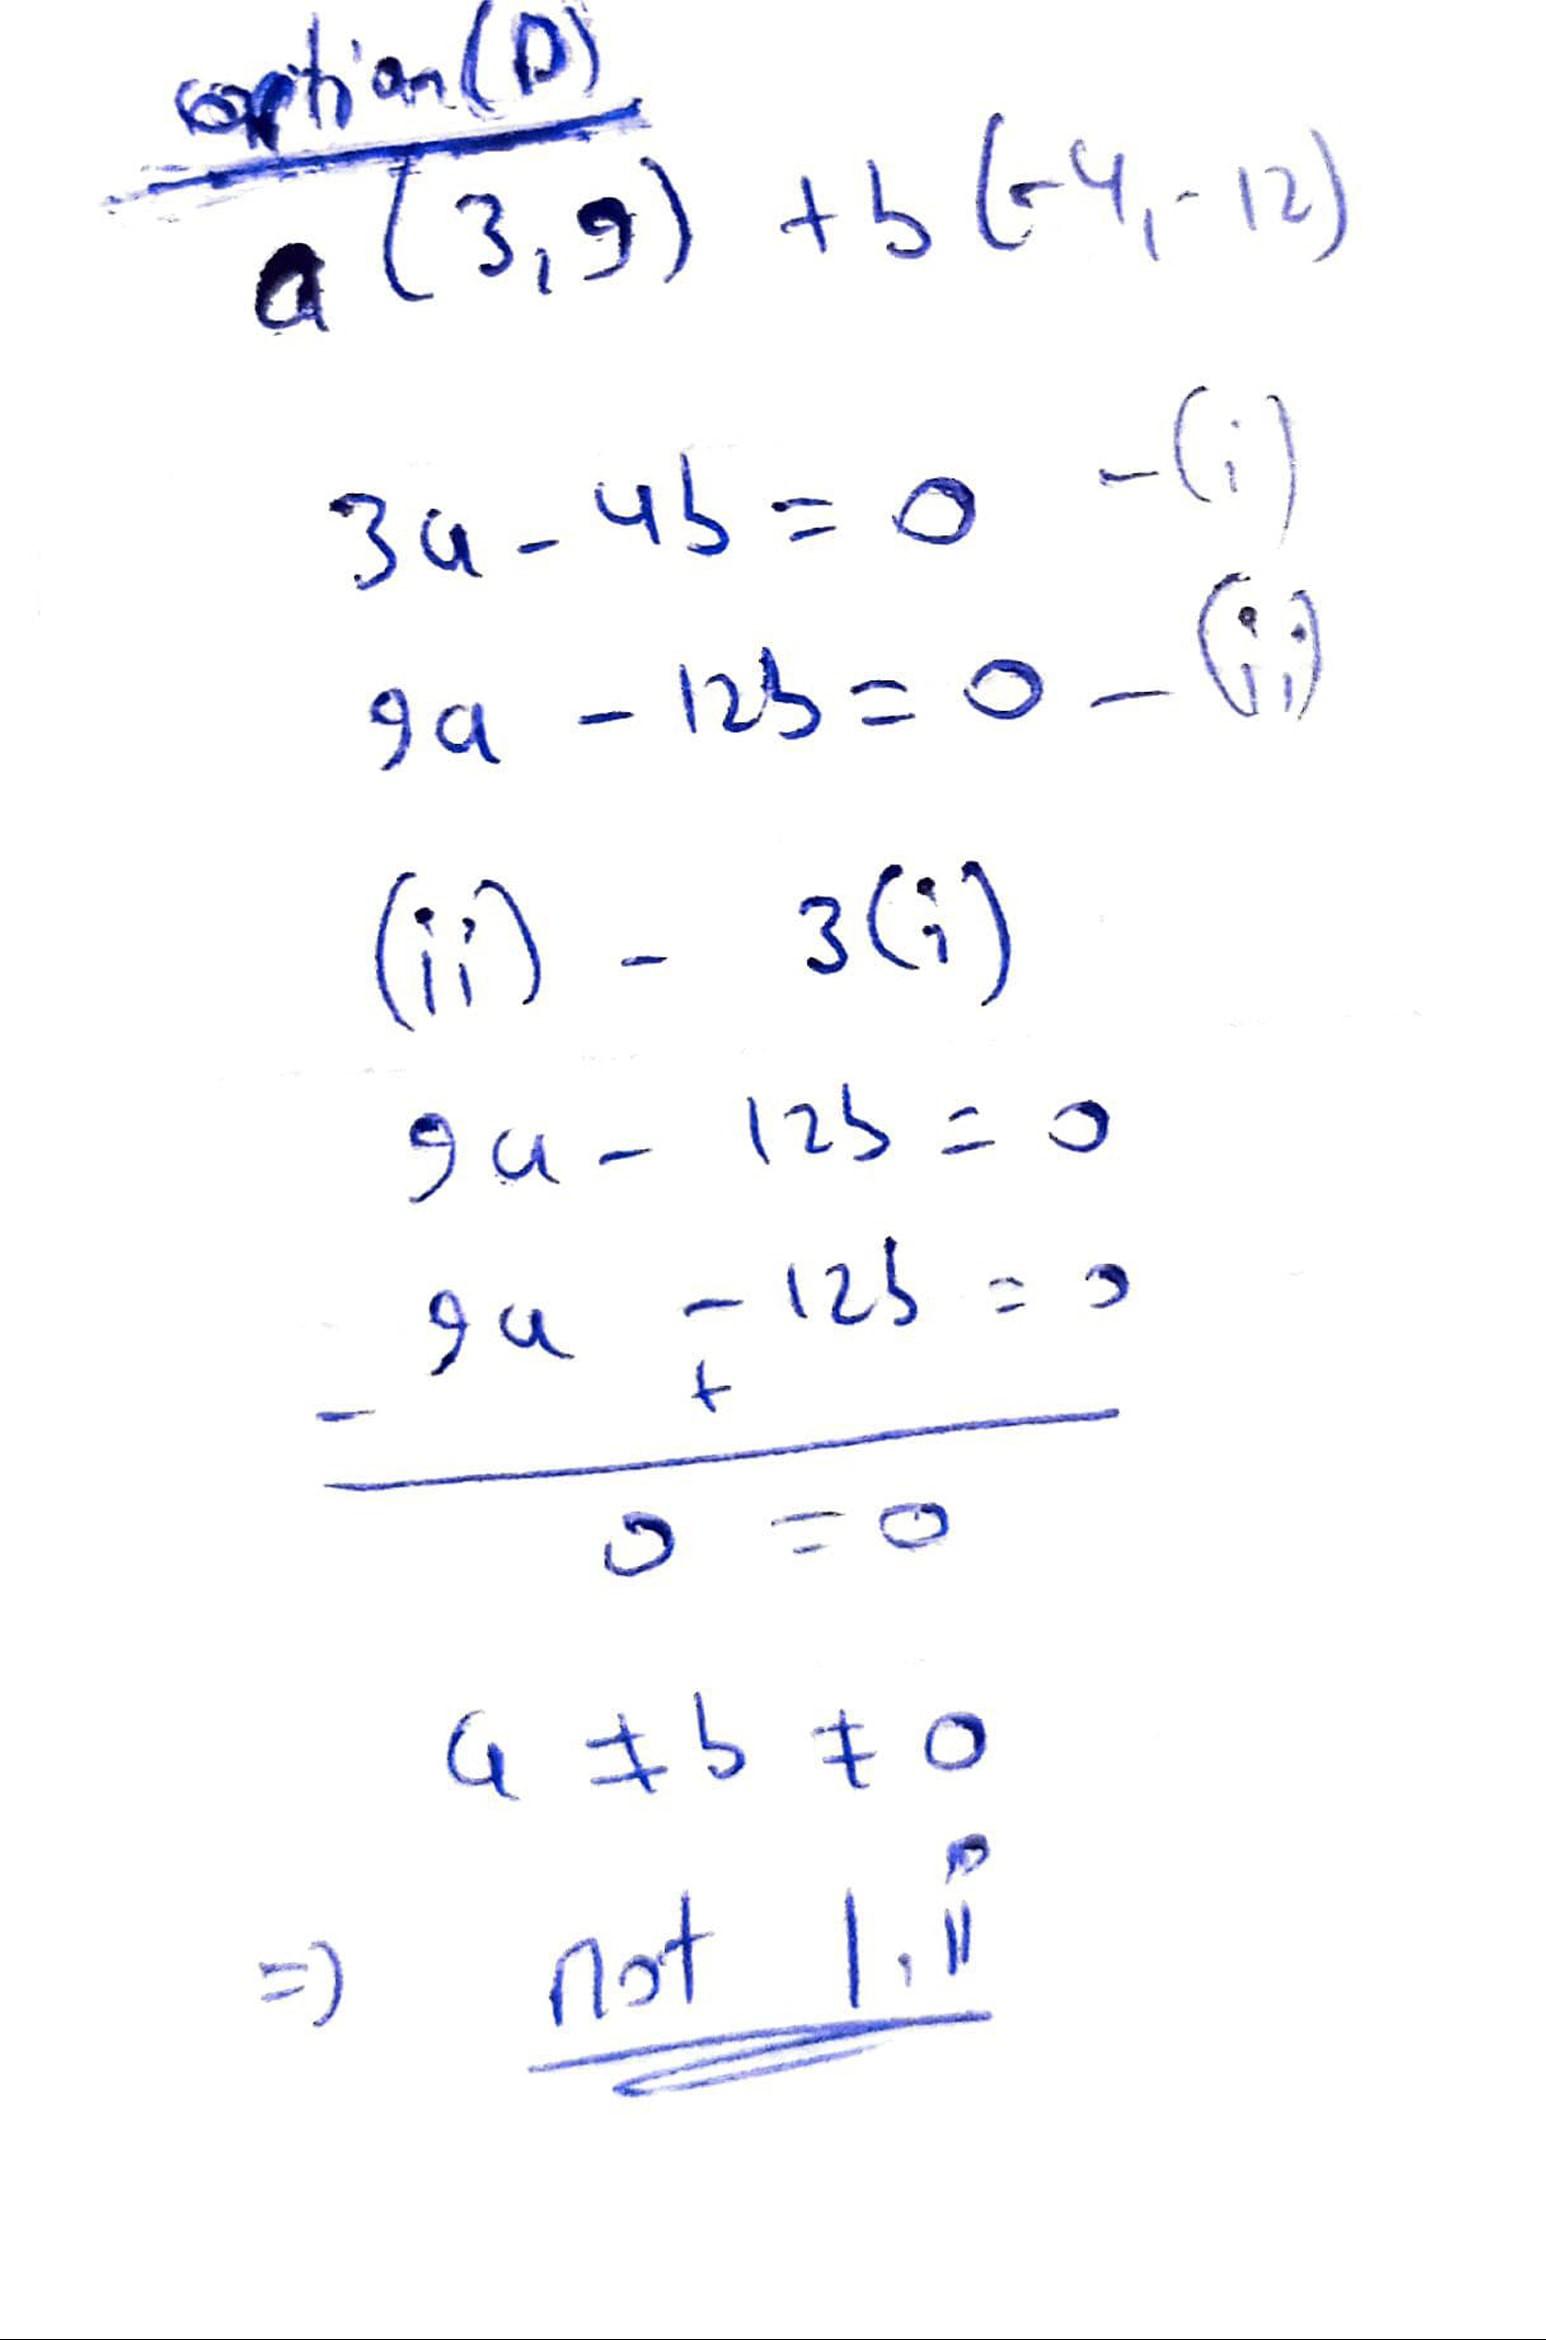 option (D)
a (3,9) + b (-4,-12)
3a - 4b = 0 - (i)
9a - 12b = 0 - (ii)
(ii) - 3(i)
9a - 12b = 0
9a - 12b = 0
- +
0 = 0
a ≠ b ≠ 0
=) not l.i